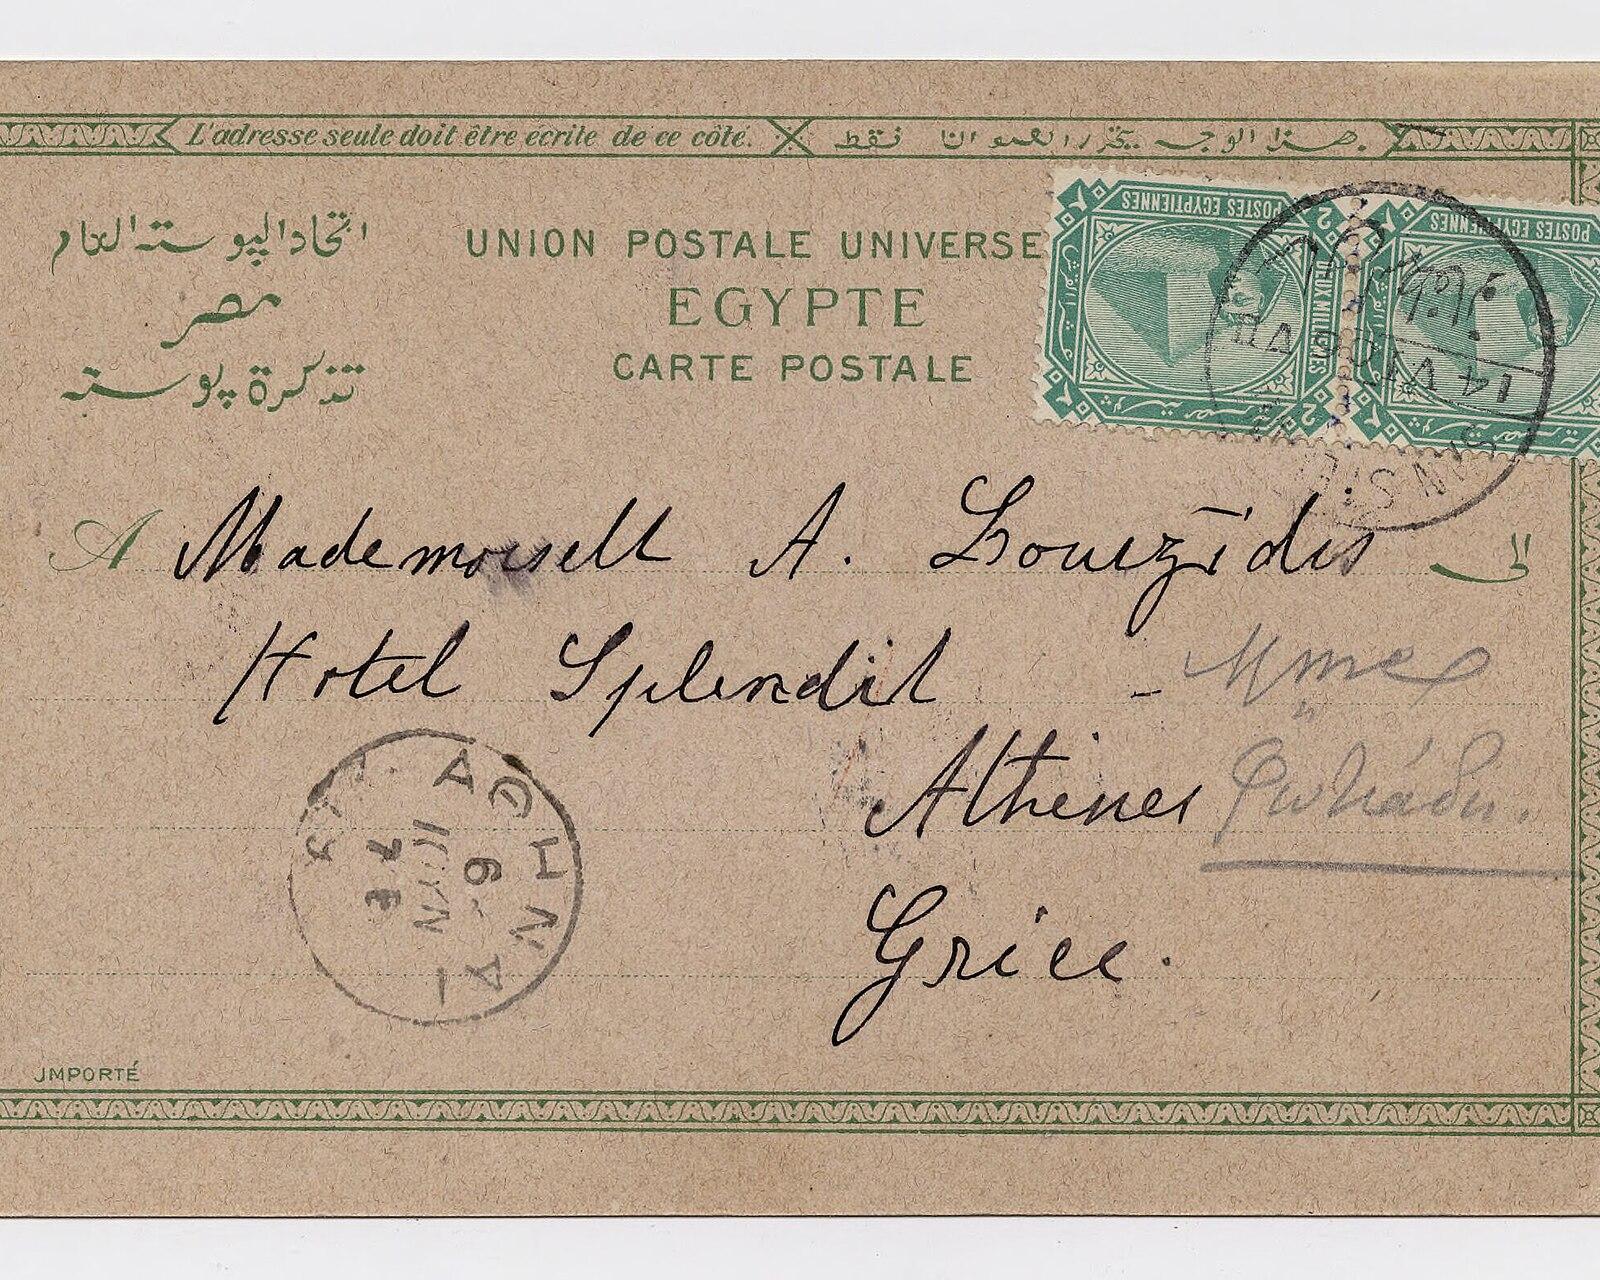 L'adresse seule doit être écrite de ce côté. هذا الوجه يحرر العنوان فقط
اتحاد البوسته العام
UNION POSTALE UNIVERSE
مصر
EGYPTE
تذكرة بوسته
CARTE POSTALE
POSTES EGYPTIENNES
DEUX MILLIEMES
POSTES EGYPTIENNES
14 VI
A Mademoisell A. Louizidis الى
Hotel Splendit - Mme
Athènes Φωτιάδη.
Grice.
ΑΘΗΝΑΙ
9 ΙΟΥΝ
IMPORTÉ